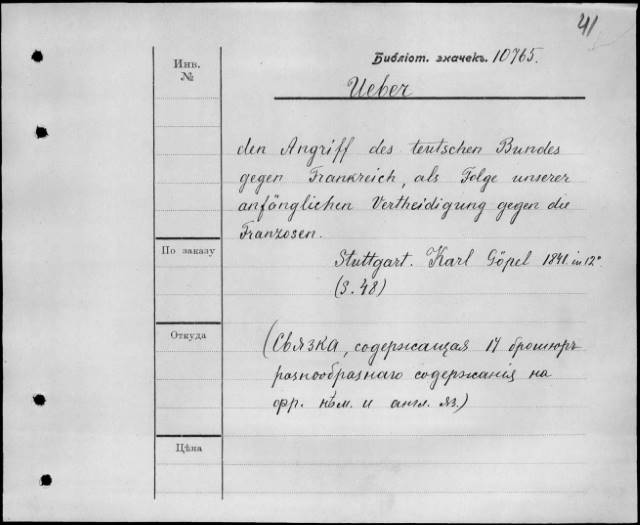 41
Библіот. значекъ. 10765.
Инв.
№
Ueber
den Angriff des teutschen Bundes
gegen Frankreich, als Folge unserer
anfänglichen Vertheidigung gegen die
Franzosen.
По заказу
Stuttgart. Karl Göpel 1841. in 12°
(S. 48)
Откуда
(Связка, содержащая 17 брошюръ
разнообразнаго содержанія на
фр. нѣм. и англ. яз.)
Цѣна